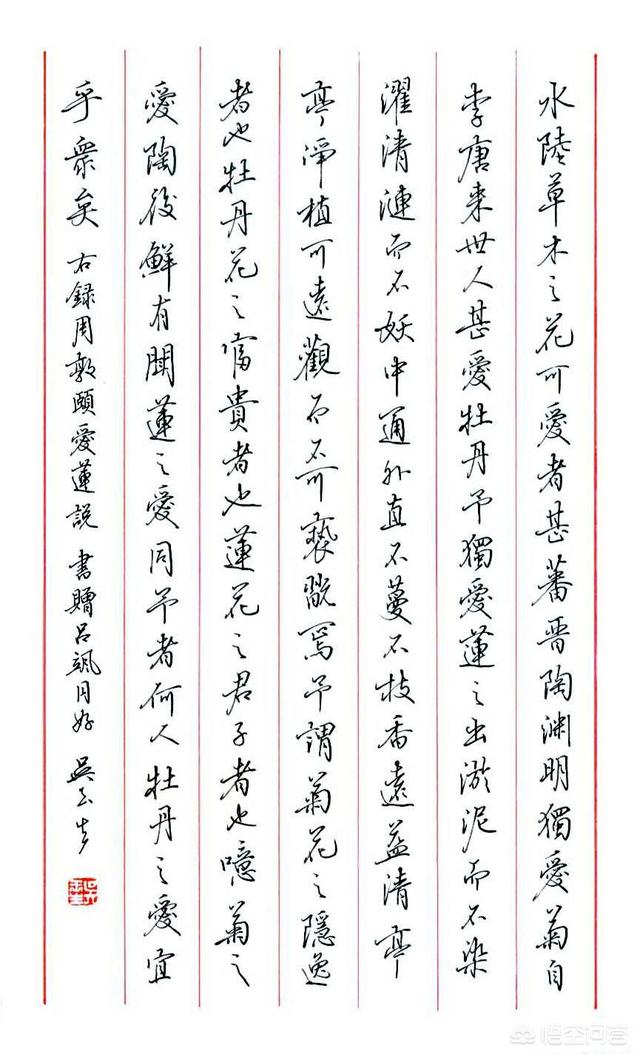 水陸草木之花可愛者甚蕃晋陶渊明獨愛菊自
李唐来世人甚愛牡丹予獨愛蓮之出淤泥而不染
濯清漣而不妖中通外直不蔓不枝香遠益清亭
亭淨植可遠觀而不可褻翫焉予謂菊花之隱逸
者也牡丹花之富貴者也蓮花之君子者也噫菊之
愛陶後鮮有聞蓮之愛同予者何人牡丹之愛宜
乎眾矣 右錄周敦頤愛蓮説 書贈吕颯同好 吳玉生
悟空问答